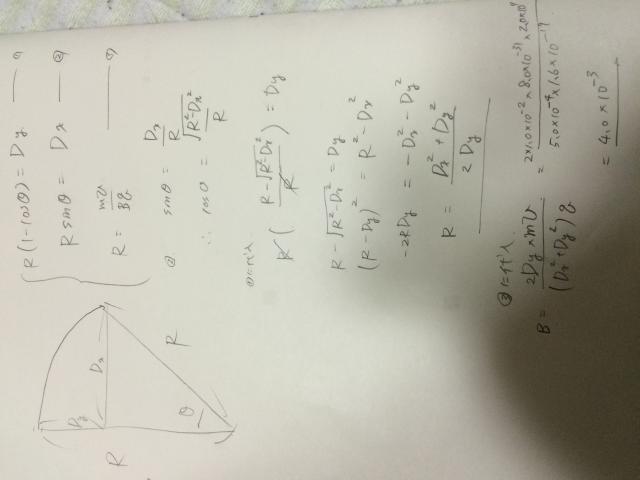 R(1-cosθ) = Dy —— ①
R sinθ = Dx —— ②
R = mv/BQ —— ③
② sinθ = Dx/R
∴ cosθ = √(R²-Dx²)/R
①に代入
R( (R-√(R²-Dx²))/R ) = Dy
R-√(R²-Dx²) = Dy
(R-Dy)² = R²-Dx²
-2RDy = -Dx²-Dy²
R = (Dx²+Dy²)/(2Dy)
③に代入
B = (2Dy×mv)/((Dx²+Dy²)Q) = (2×1.0×10⁻²×8.0×10⁻³¹×2.0×10⁸)/(5.0×10⁻⁴×1.6×10⁻¹⁹)
= 4.0×10⁻³
Dy
Dx
R
R
θ